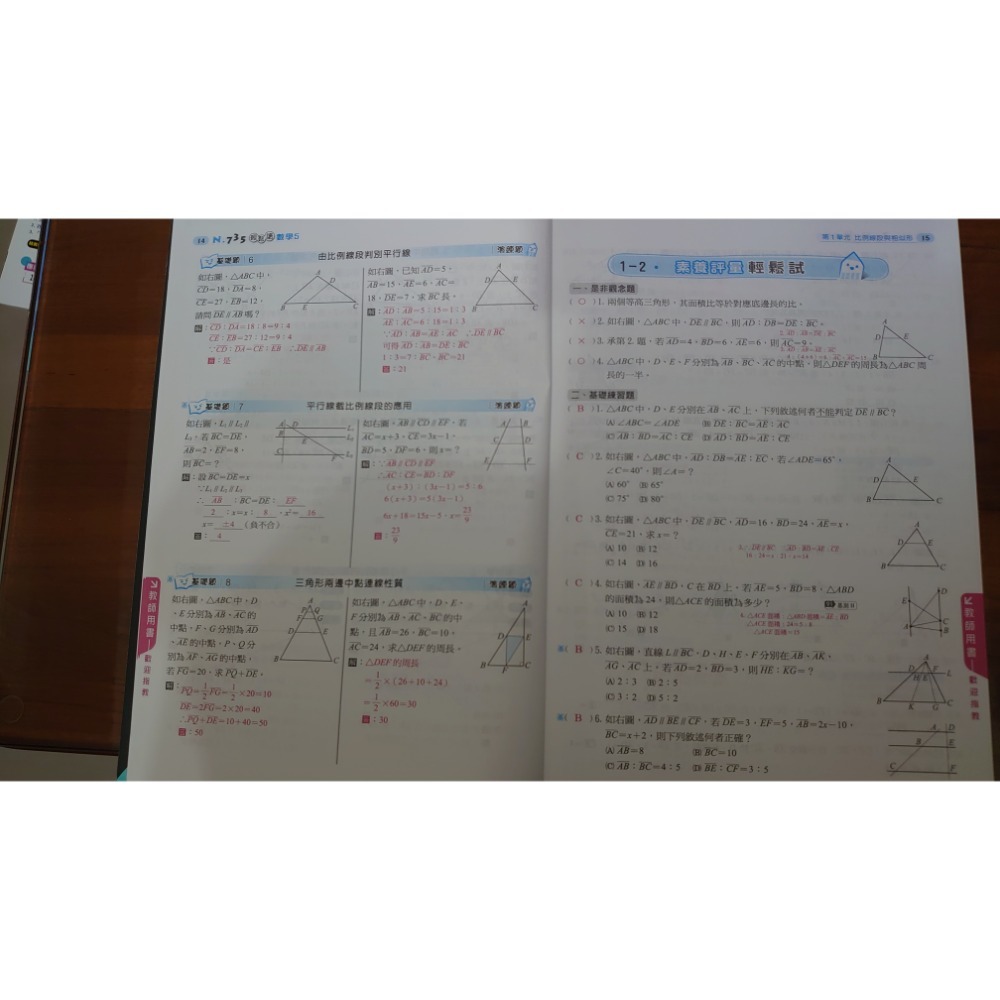 14 N.735 輕鬆讀 數學5
基礎題 6 由比例線段判別平行線
如右圖，△ABC中，
CD=18，DA=8，
CE=27，EB=12，
請問DE∥AB嗎？
解：CD：DA=18：8=9：4
CE：EB=27：12=9：4
∵CD：DA=CE：EB ∴DE∥AB
答：是
演練題
如右圖，已知AD=5，
AB=15，AE=6，AC=
18，DE=7，求BC長。
解：AD：AB=5：15=1：3
AE：AC=6：18=1：3
∵AD：AB=AE：AC ∴DE∥BC
可得AD：AB=DE：BC
1：3=7：BC，BC=21
答：21
基礎題 7 平行線截比例線段的應用
如右圖，L₁∥L₂∥
L₃，若BC=DE，
AB=2，EF=8，
則BC=？
解：設BC=DE=x
∵L₁∥L₂∥L₃
∴ AB ：BC=DE： EF
2 ：x=x： 8 ，x²= 16
x= ±4 （負不合）
答： 4
演練題
如右圖，AB∥CD∥EF，若
AC=x+3，CE=3x−1，
BD=5，DF=6，則x=？
解：∵AB∥CD∥EF
∴AC：CE=BD：DF
(x+3)：(3x−1)=5：6
6(x+3)=5(3x−1)
6x+18=15x−5，x=23/9
答：23/9
基礎題 8 三角形兩邊中點連線性質
如右圖，△ABC中，D
、E分別為AB、AC的
中點，F、G分別為AD
、AE的中點，P、Q分
別為AF、AG的中點，
若FG=20，求PQ+DE。
解：PQ=1/2FG=1/2×20=10
DE=2FG=2×20=40
∴PQ+DE=10+40=50
答：50
演練題
如右圖，△ABC中，D、E、
F分別為AB、AC、BC的中
點，且AB=26，BC=10，
AC=24，求△DEF的周長。
解：△DEF的周長
=1/2×(26+10+24)
=1/2×60=30
答：30
教師用書 歡迎指教
第1單元 比例線段與相似形 15
1-2 · 素養評量 輕鬆試
一、是非觀念題
（ ○ ）1. 兩個等高三角形，其面積比等於對應底邊長的比。
（ × ）2. 如右圖，△ABC中，DE∥BC，則AD：DB=DE：BC。
（ × ）3. 承第2題，若AD=4，BD=6，AE=6，則AC=9。
（ ○ ）4. △ABC中，D、E、F分別為AB、BC、AC的中點，則△DEF的周長為△ABC周
長的一半。
二、基礎練習題
（ B ）1. △ABC中，D、E分別在AB、AC上，下列敘述何者不能判定DE∥BC？
(A) ∠ABC=∠ADE (B) DE：BC=AE：AC
(C) AB：BD=AC：CE (D) AD：BD=AE：CE
（ C ）2. 如右圖，△ABC中，AD：DB=AE：EC，若∠ADE=65°，
∠C=40°，則∠A=？
(A) 60° (B) 65°
(C) 75° (D) 80°
（ C ）3. 如右圖，△ABC中，DE∥BC，AD=16，BD=24，AE=x，
CE=21，求x=？
(A) 10 (B) 12
(C) 14 (D) 16
3. ∵DE∥BC ∴AD：BD=AE：CE
16：24=x：21，x=14
（ C ）4. 如右圖，AE∥BD，C在BD上，若AE=5，BD=8，△ABD
的面積為24，則△ACE的面積為多少？
(A) 10 (B) 12
(C) 15 (D) 18
4. △ACE面積：△ABD面積=AE：BD
△ACE面積：24=5：8
△ACE面積=15
（ B ）5. 如右圖，直線L∥BC，D、H、E、F分別在AB、AK、
AG、AC上，若AD=2，BD=3，則HE：KG=？
(A) 2：3 (B) 2：5
(C) 3：2 (D) 5：2
（ B ）6. 如右圖，AD∥BE∥CF，若DE=3，EF=5，AB=2x−10，
BC=x+2，則下列敘述何者正確？
(A) AB=8 (B) BC=10
(C) AB：BC=4：5 (D) BE：CF=3：5
教師用書 歡迎指教